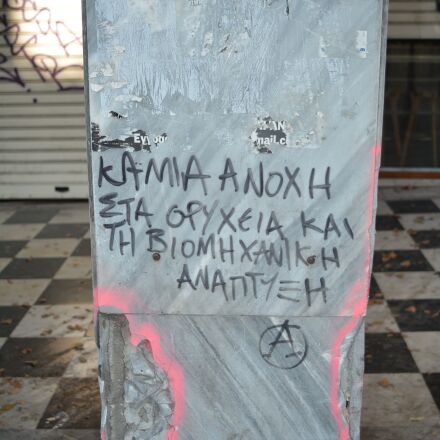 ΚΑΜΙΑ ΑΝΟΧΗ
ΣΤΑ ΟΡΥΧΕΙΑ ΚΑΙ
ΤΗ ΒΙΟΜΗΧΑΝΙΚΗ
ΑΝΑΠΤΥΞΗ
A